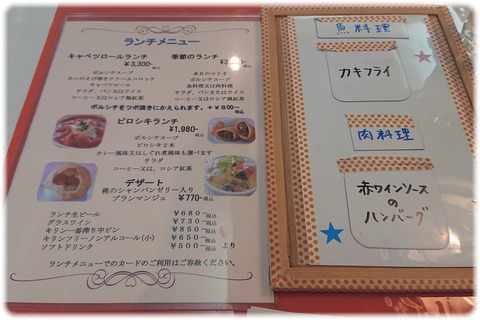 ランチメニュー
キャベツロールランチ
¥3,300-税込
ボルシチスープ
キャベツロール
サラダ、パンまたはライス
コーヒー又はロシア風紅茶
季節のランチ
本日のマリネ
ボルシチスープ
魚料理又は肉料理
サラダ、パンまたはライス
コーヒー又はロシア風紅茶
ボルシチをツボ焼きにかえられます。
ピロシキランチ
¥1,980-税込
ボルシチスープ
ピロシキ2本
カレー風味又はしぐれ煮風味も選べます
サラダ
コーヒー又は、ロシア紅茶
デザート
桃のシャンパンゼリー入り
ブランマンジェ ¥770-税込
ランチ生ビール ¥680-税込
グラスワイン ¥730-税込
キリン一番搾り中ビン ¥850-税込
キリンフリーノンアルコール(小) ¥650-税込
ソフトドリンク ¥500-税込 より
ランチメニューでのカードのご利用はご容赦ください。
魚料理
カキフライ
肉料理
赤ワインソース
の
ハンバーグ